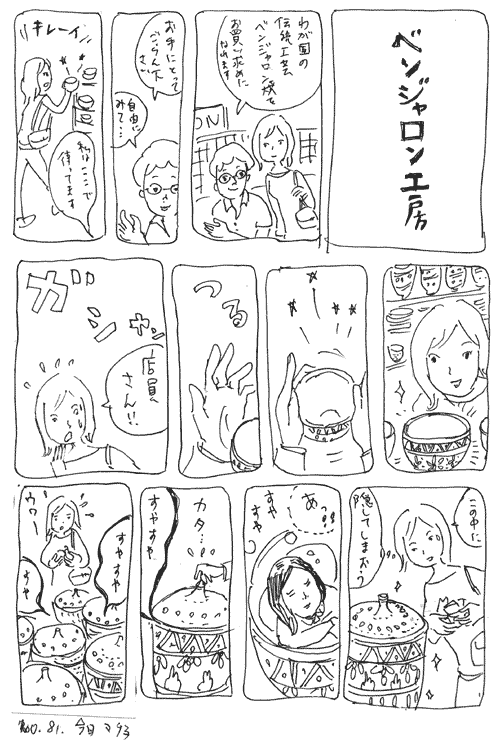 ベンジャロン工房
わが国の
伝統工芸
ベンジャロン焼を
お買い求めに
なれます
ON
お手にとって
ごらん下
さい
自由に
みて…
キレーイ
私はここで
待ってます
つる
ガシャン
店員
さん!!
この中に
隠してしまおう
あっ
すやすや
カタ…
すやすや
すやすや
すやすや
ウワー
NO.81. 今日マチ子